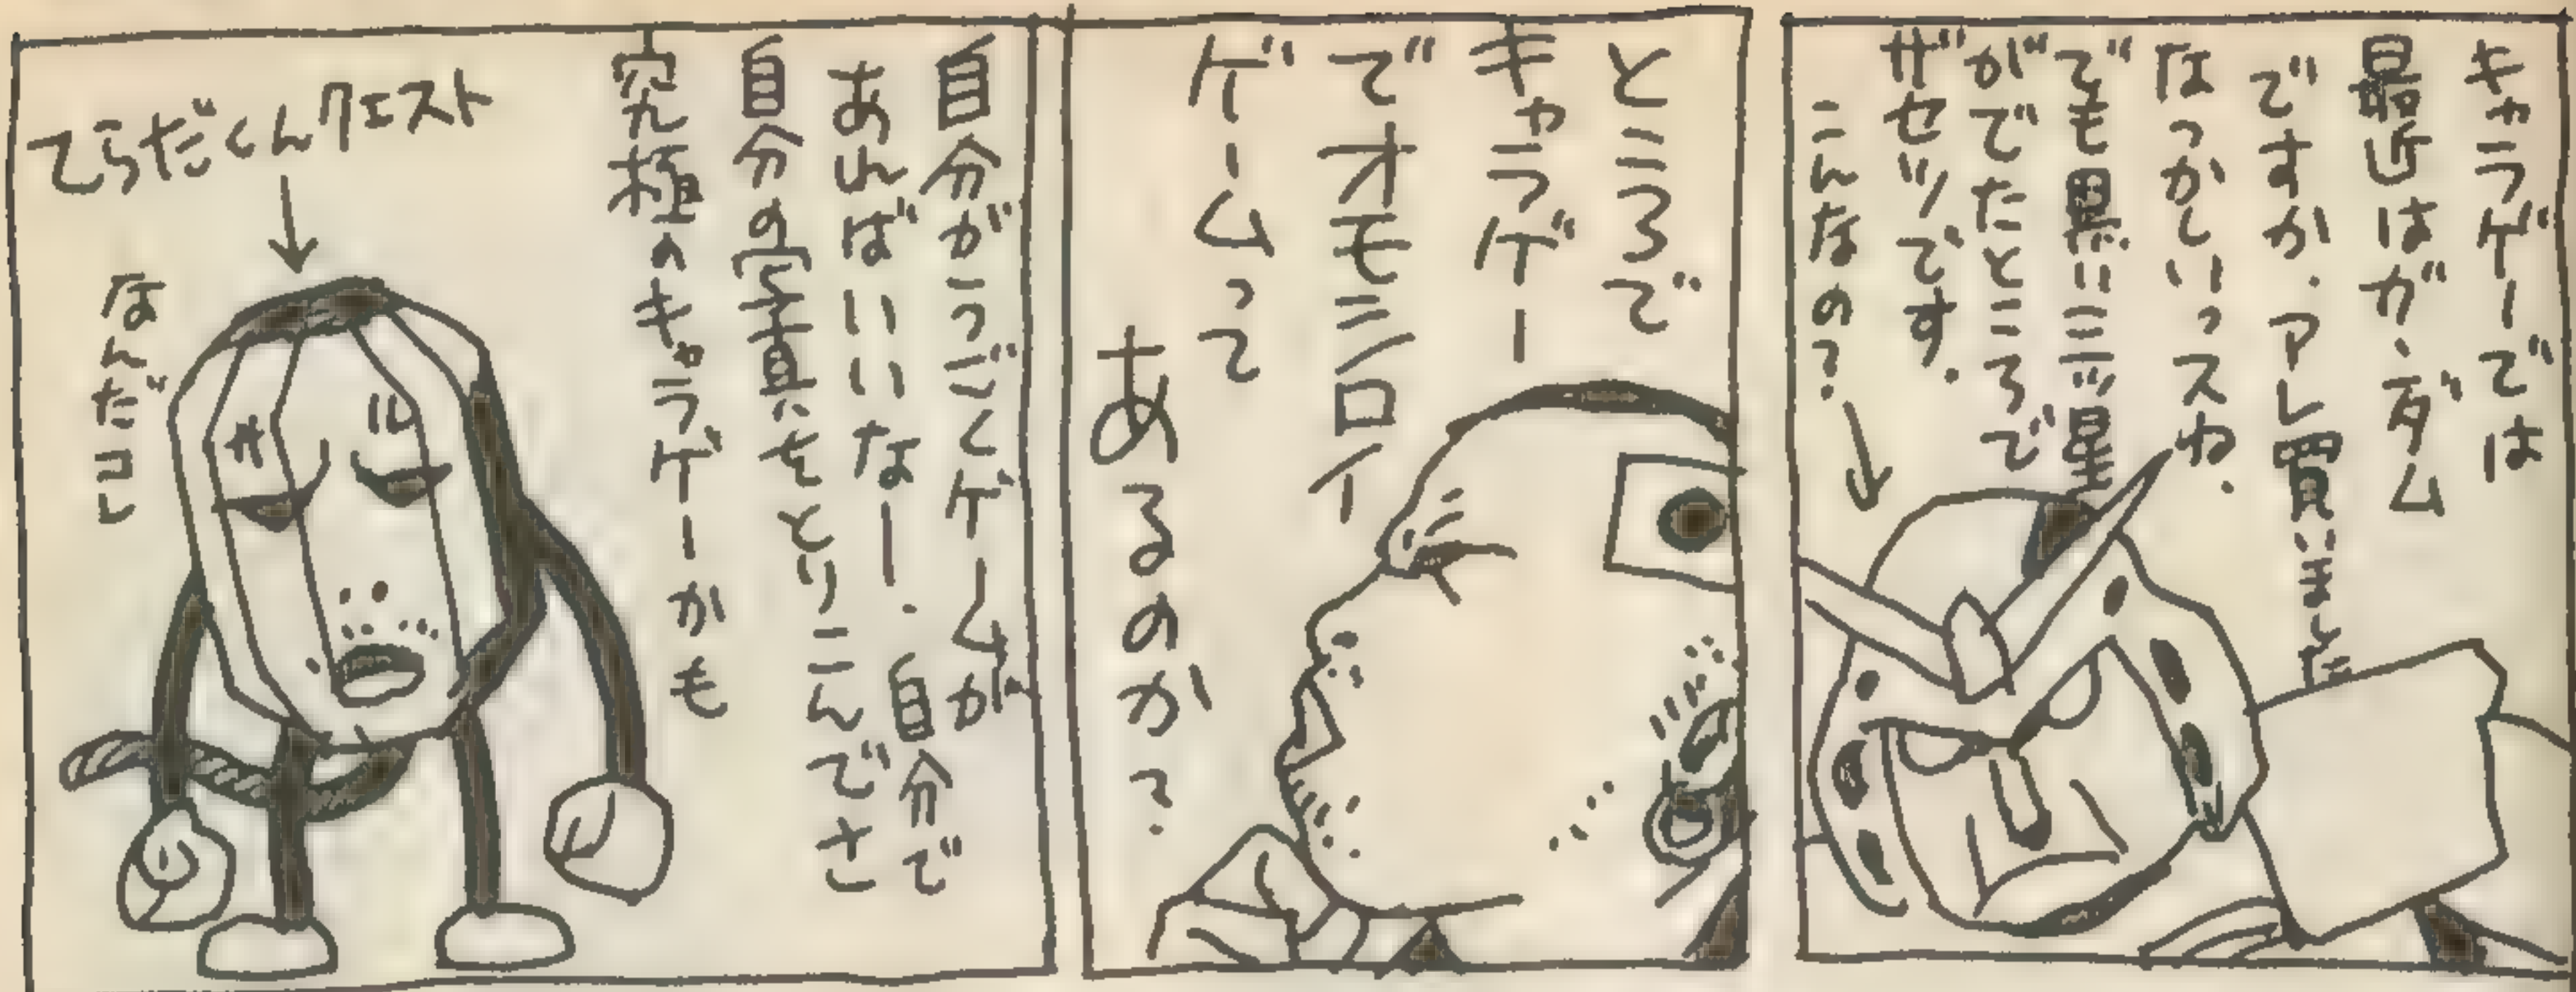 キャラゲーでは
最近はガンダム
ですか、アレ買いました
なつかしいっスね.
でも黒い三ツ星
がでたところで
ザセツです.
こんなの?
ところで
キャラゲー
でオモシロイ
ゲームって
あるのか?
自分がうごくゲームが
あればいいなー. 自分で
自分の写真をとりこんでさ
究極のキャラゲーかも
てらだくんクエスト
なんだコレ